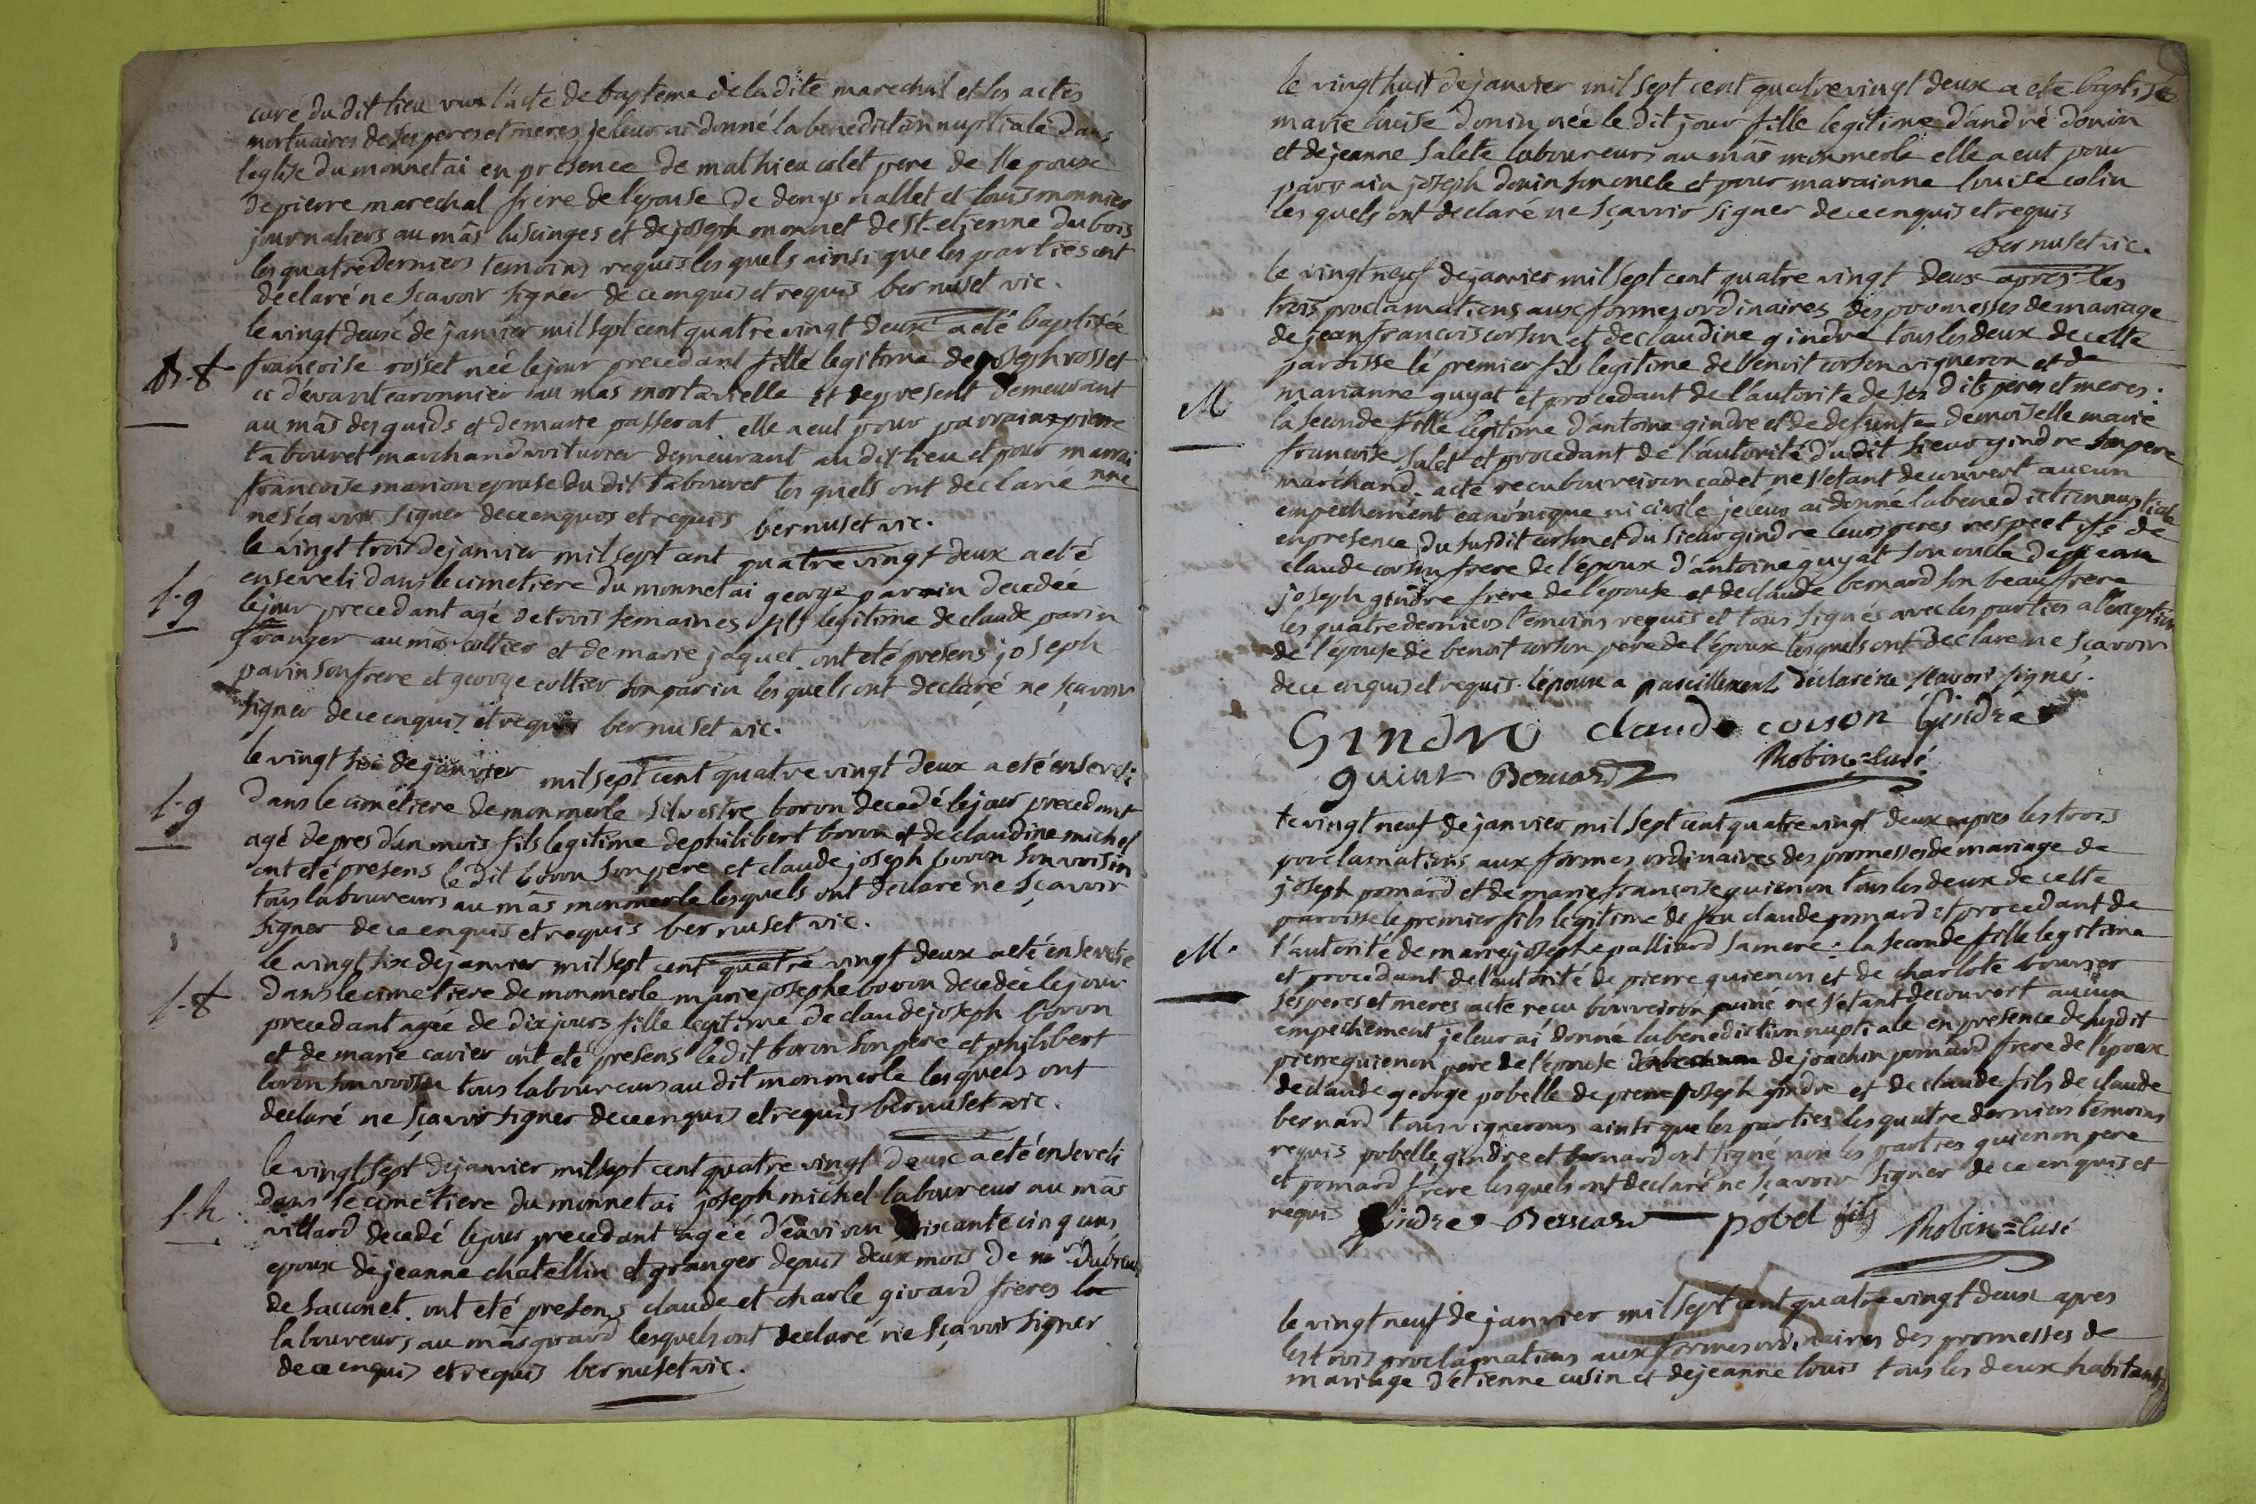 curé du dit lieu vu l'acte de baptême de la dite marechal et les actes
mortuaires de ses peres et meres je leur ai donné la benediction nuptiale dans
l'eglise du monnetai en presence de mathieu colet pere de l'epoux
de pierre marechal frere de l'epouse de denys niallet et louis monnier
journaliers au mas luscinges et de joseph monnet de st etienne du bois
les quatre derniers temoins requis les quels ainsi que les parties ont
declaré ne sçavoir signer de ce enquis et requis bernuset vic.
le vingt deux de janvier mil sept cent quatre vingt deux a eté baptisée
B. f françoise rosset née le jour precedant fille legitime de joseph rosset
ci devant caronnier au mas mortarelle et de present demeurant
au mas des guids et de marie passerat elle a eut pour parrain pierre
tabouret marchand voiturier demeurant au dit lieu et pour marrai
nne
françoise marion epouse du dit tabouret les quels ont declaré
ne sçavoir signer de ce enquis et requis bernuset vic.
le vingt trois de janvier mil sept cent quatre vingt deux a eté
S. g enseveli dans le cimetiere du monnetai george parin decedée
le jour precedant agé de trois semaines fils legitime de claude parin
granger au mas coltier et de marie jaquet. ont eté presens joseph
parin son frere et george coltier son parin les quels ont declaré ne sçavoir
signer de ce enquis et requis bernuset vic.
le vingt six de janvier mil sept cent quatre vingt deux a eté enseveli
S. g dans le cimetiere de monmerle silvestre boron decedé le jour precedant
agé de pres d'un mois fils legitime de philibert boron et de claudine michel
ont eté presens le dit boron son pere et claude joseph boron son voisin
tous laboureurs au mas monmerle lesquels ont declaré ne sçavoir
signer de ce enquis et requis bernuset vic.
le vingt six de janvier mil sept cent quatre vingt deux a eté ensevelie
S. f dans le cimetiere de monmerle marie josephe boron decedée le jour
precedant agée de dix jours fille legitime de claude joseph boron
et de marie cavier ont eté presens le dit boron son pere et philibert
boron son voisin tous laboureurs au dit monmerle les quels ont
declaré ne sçavoir signer de ce enquis et requis bernuset vic.
le vingt sept de janvier mil sept cent quatre vingt deux a eté enseveli
S. h dans le cimetiere du monnetai joseph michel laboureur au mas
villard decedé le jour precedant agéé d'environ soixante cinq ans
epoux de jeanne chatellin et granger depuis deux mois de mr dubreul
de sacconet. ont eté presens claude et charle girard freres
laboureurs au mas girard lesquels ont declaré ne sçavoir signer
de ce enquis et requis bernuset vic.
le vingt huit de janvier mil sept cent quatre vingt deux a eté baptisée
marie louise donin née le dit jour fille legitime d'andré donin
et de jeanne salete laboureurs au mas monmerle elle a eut pour
parrain joseph donin son oncle et pour marainne louise colin
les quels ont declaré ne sçavoir signer de ce enquis et requis
bernuset vic.
le vingt neuf de janvier mil sept cent quatre vingt deux apres les
trois proclamations aux formes ordinaires des promesses de mariage
de jean francois corson et de claudine gindre tous les deux de cette
paroisse le premier fils legitime de benoit corson vigneron et de
M marianne guyat et procedant de l'autorité de ses dits peres et meres:
la seconde fille legitime d'antoine gindre et de defunte demoiselle marie
francoise salet et procedant de l'autorité du dit sieur gindre son pere
marchand. acte recu bouveiron cadet ne s'etant decouvert aucun
empechement canonique ni civile je leur ai donné la benediction nuptiale
en presence du susdit corson et du sieur gindre leurs peres respectifs de
claude corson frere de l'epoux d'antoine guyat son oncle de jean
joseph gindre frere de l'epouse et de claude bernard son beau frere
les quatre derniers temoins requis et tous signés avec les parties a l'exception
de l'epouse de benoit corson pere de l'epoux lesquels ont declare ne sçavoir
de ce enquis et requis. l'epoux a pareillement déclaré ne sçavoir signer.
Gindre claude corson Gindre
guiat Bernard Robin = Curé
le vingt neuf de janvier mil sept cent quatre vingt deux apres les trois
proclamations aux formes ordinaires des promesses de mariage de
joseph pomard et de marie francoise quienon tous les deux de cette
paroisse le premier fils legitime de feu claude pomard et procedant de
M. l'autorité de marie josephe palliard sa mere: la seconde fille legitime
et procedant de l'autorité de pierre quienon et de charlote bourger
ses peres et meres acte reçu bouveiron puiné ne s'etant decouvert aucun
empechement je leur ai donné la benediction nuptiale en presence de susdit
pierre quienon pere de l'epouse de joachin pomard frere de l'epoux
de claude george pobelle de pierre joseph gindre et de claude fils de claude
bernard tous vignerons ainsi que les parties les quatre derniers temoins
requis pobelle gindre et bernard ont signé non les parties quienon pere
et pomard frere lesquels ont declaré ne sçavoir signer de ce enquis et
requis Gindre Bernard pobel fils Robin = Curé
le vingt neuf de janvier mil sept cent quatre vingt deux apres
les trois proclamations aux formes ordinaires des promesses de
mariage d'etienne cusin et de jeanne louis tous les deux habitants